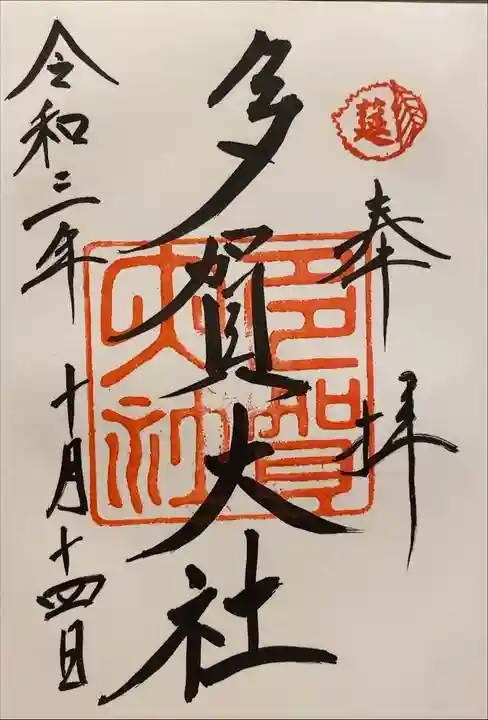 奉拝
莚
多賀大社
多賀大社
令和三年 十月十四日